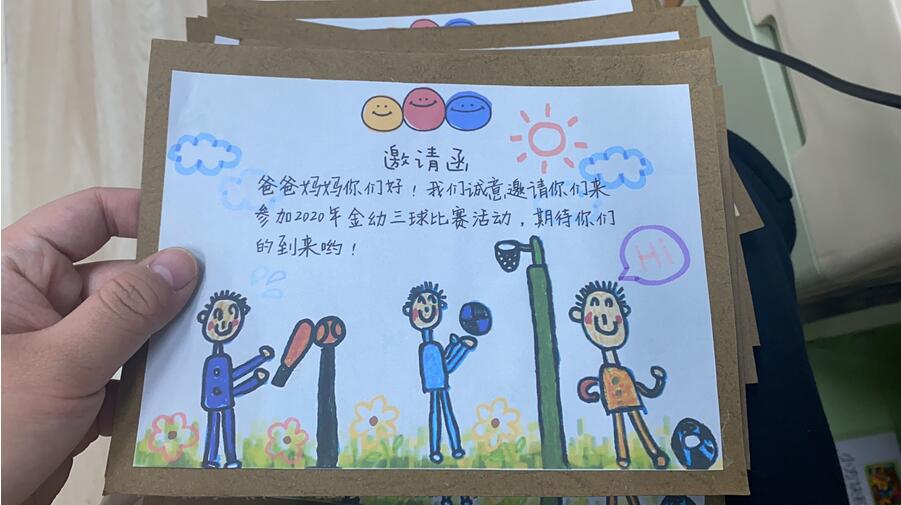 邀请函
爸爸妈妈你们好！我们诚意邀请你们来
参加2020年金幼三球比赛活动，期待你们
的到来哟！
Hi